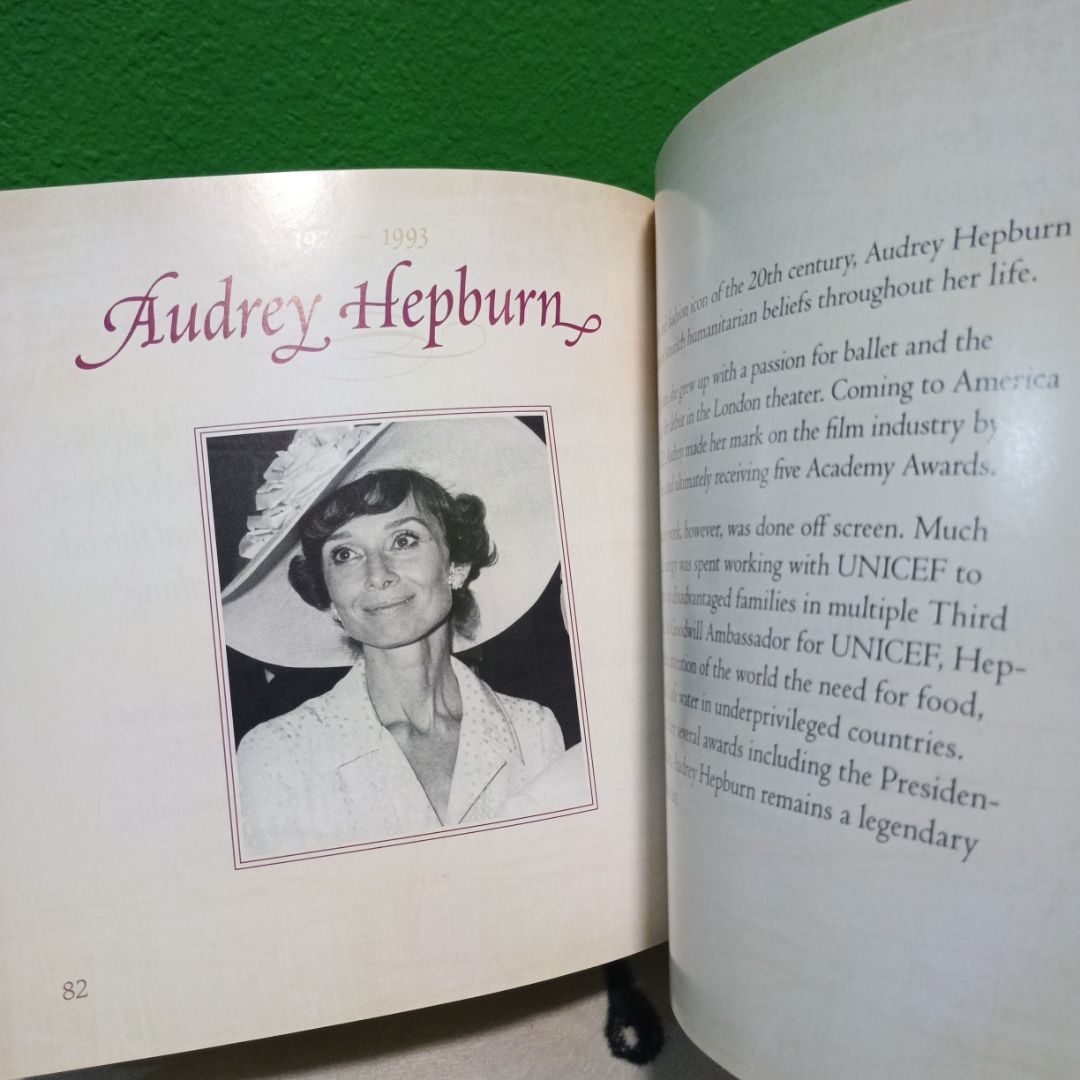 1993
Audrey Hepburn
82
fashion icon of the 20th century, Audrey Hepburn
humanitarian beliefs throughout her life.
she grew up with a passion for ballet and the
debut in the London theater. Coming to America
Audrey made her mark on the film industry by
and ultimately receiving five Academy Awards.
work, however, was done off screen. Much
was spent working with UNICEF to
disadvantaged families in multiple Third
Goodwill Ambassador for UNICEF, Hep-
attention of the world the need for food,
water in underprivileged countries.
several awards including the Presiden-
Audrey Hepburn remains a legendary